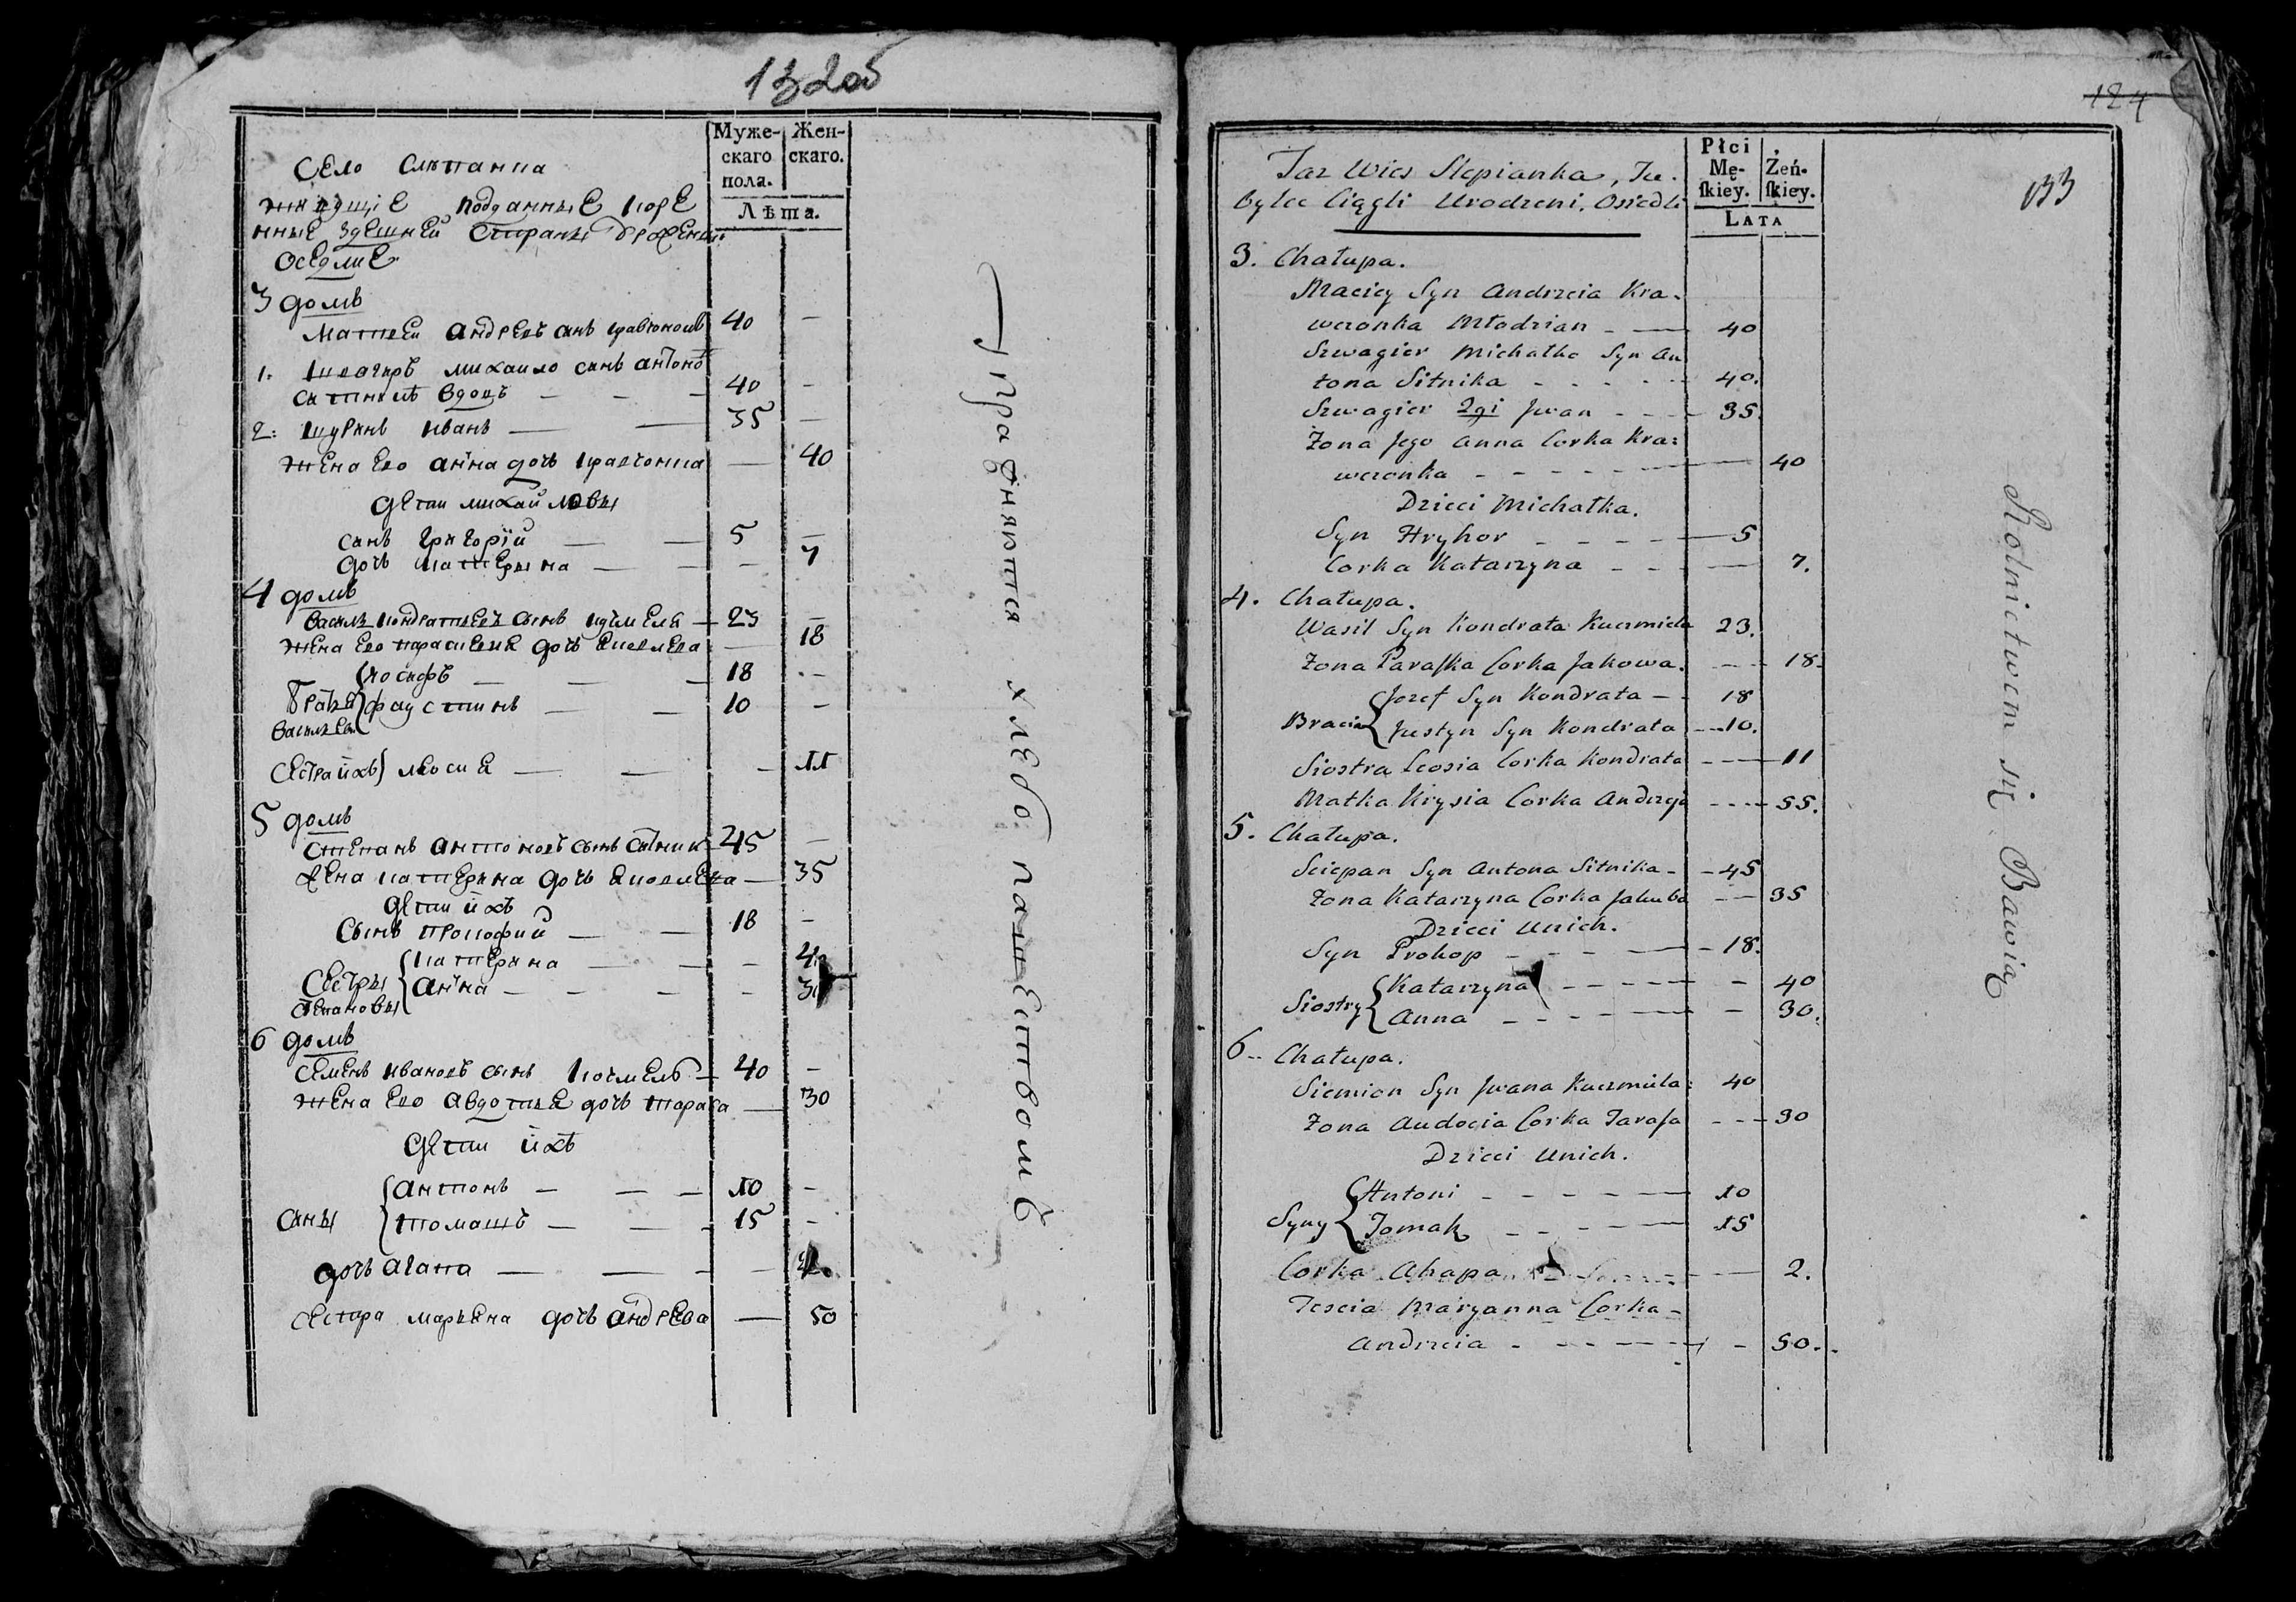 132об
Село Слѣпанка
живущіе подданные коре
нные здешней страны урожены
оседлые
Муже-
скаго
пола.
Жен-
скаго.
Лѣта.
3 домъ
Матвей андреевъ сынъ 40 —
1. швагиръ михайло сынъ антонов
ситникъ вдовъ — — — 40 —
2: шуринъ иванъ — — 35 —
жена его анна дочь — 40
дети михайловы
сынъ григорій — — 5 —
дочь катерына — — — 7
4 домъ
василь кондратьевъ сынъ — 23 —
жена его параскевия дочь яковлева — 18
братья
васильевы
иосифъ — — — 18 —
фаустинъ — — 10 —
сестра ихъ леосия — — — 11
5 домъ
степанъ антоновъ сынъ ситникъ 45 —
жена катерина дочь яковлева — 35
дети ихъ
сынъ прокофий — — 18 —
сестры
степановы
катерина — — — 40
анна — — — — 30
6 домъ
семенъ ивановъ сынъ — 40 —
жена его авдотья дочь тараса — 30
дети ихъ
сыны
антонъ — — — 10 —
томашъ — — — 15 —
дочь агапа — — — — 2.
сестра марьяна дочь андреева — 50
Упражняются хлебопашествомъ
124
133
Taz Wies Slepianka, Tu-
bylce Ciągli Urodzeni, Osiedli
Płci
Mę-
ſkiey.
Żeń-
ſkiey.
LATA
3. Chałupa.
Maciey Syn Andrzeia Kra-
weronka Młodzian - — 40
Szwagier Michałko Syn An
tona Sitnika - - - - - 40.
Szwagier 2gi Jwan - - - 35.
Zona Jego Anna Corka Kra-
weronka - - - - - — 40
Dzieci Michałka.
Syn Hryhor - - - - — 5
Corka Katarzyna - - - — 7.
4. Chałupa.
Wasil Syn Kondrata Kuzmicla 23.
Zona Paraſka Corka Jakowa. - - - 18.
Bracia
Jozef Syn Kondrata - - 18
Justyn Syn Kondrata - - 10.
Siostra Leosia Corka Kondrata - - - — 11
Matka Krysia Corka Andrzeja - - - - 55.
5. Chałupa.
Sciepan Syn Antona Sitnika - - 45
Zona Katarzyna Corka Jakuba - - 35
Dzieci Unich.
Syn Prokop - - - - — - 18.
Siostry
Katarzyna - - - - - — - 40
Anna - - - - - — - 30.
6. Chałupa.
Siemion Syn Jwana Kuzmicla: 40
Zona Audocia Corka Taraſa - - - 30
Dzieci Unich.
Syny
Antoni - - - - - — 10
Tomaſz - - - - — 15
Corka Ahapa - - - — 2.
Tescia Maryanna Corka -
Andrzeia - - - - - — - 50.
Rolnictwem się Bawią